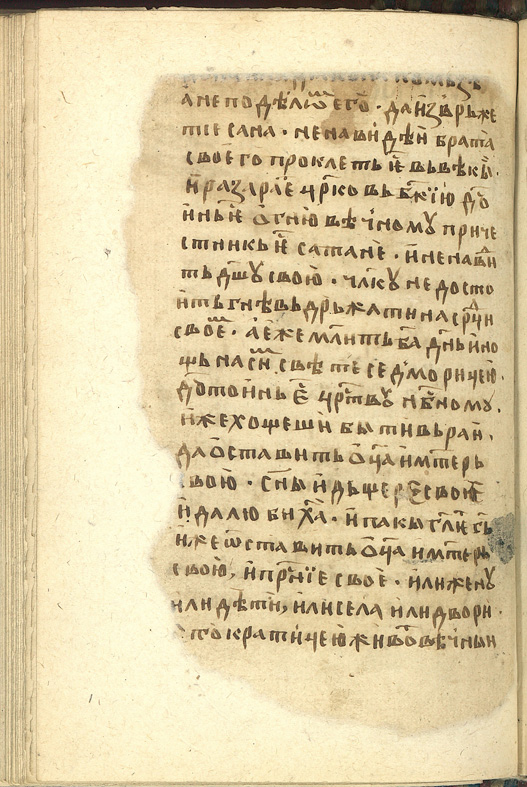 а не подѣли ѿ его · да изврьже
тсе сана · ненавидѣи брата
своего проклеть ѥ вь вѣкы ·
и разараѥ црковь бжїю до
инь ѥ огню вѣчномꙋ приче
стникь ѥ сатане · и ненави
ть дшꙋ свою · члкꙋ не досто
ить гнѣвь дрьжати на срци
своѥ · а еже млить ба днь и но
щь на сн свѣте седморицею
достоинь ѥ црствꙋ нбномꙋ ·
иже хощеши быти вь раи ·
да оставить оца и мтерь
свою · сны и дьщере своѥ
и да любиⷮ ха · и пакы гл гь
иже ѡставить оца и мтерь
свою, и прнїе свое · или женꙋ
или дѣти, или села или двори ·
стократицею живо вѣчныи